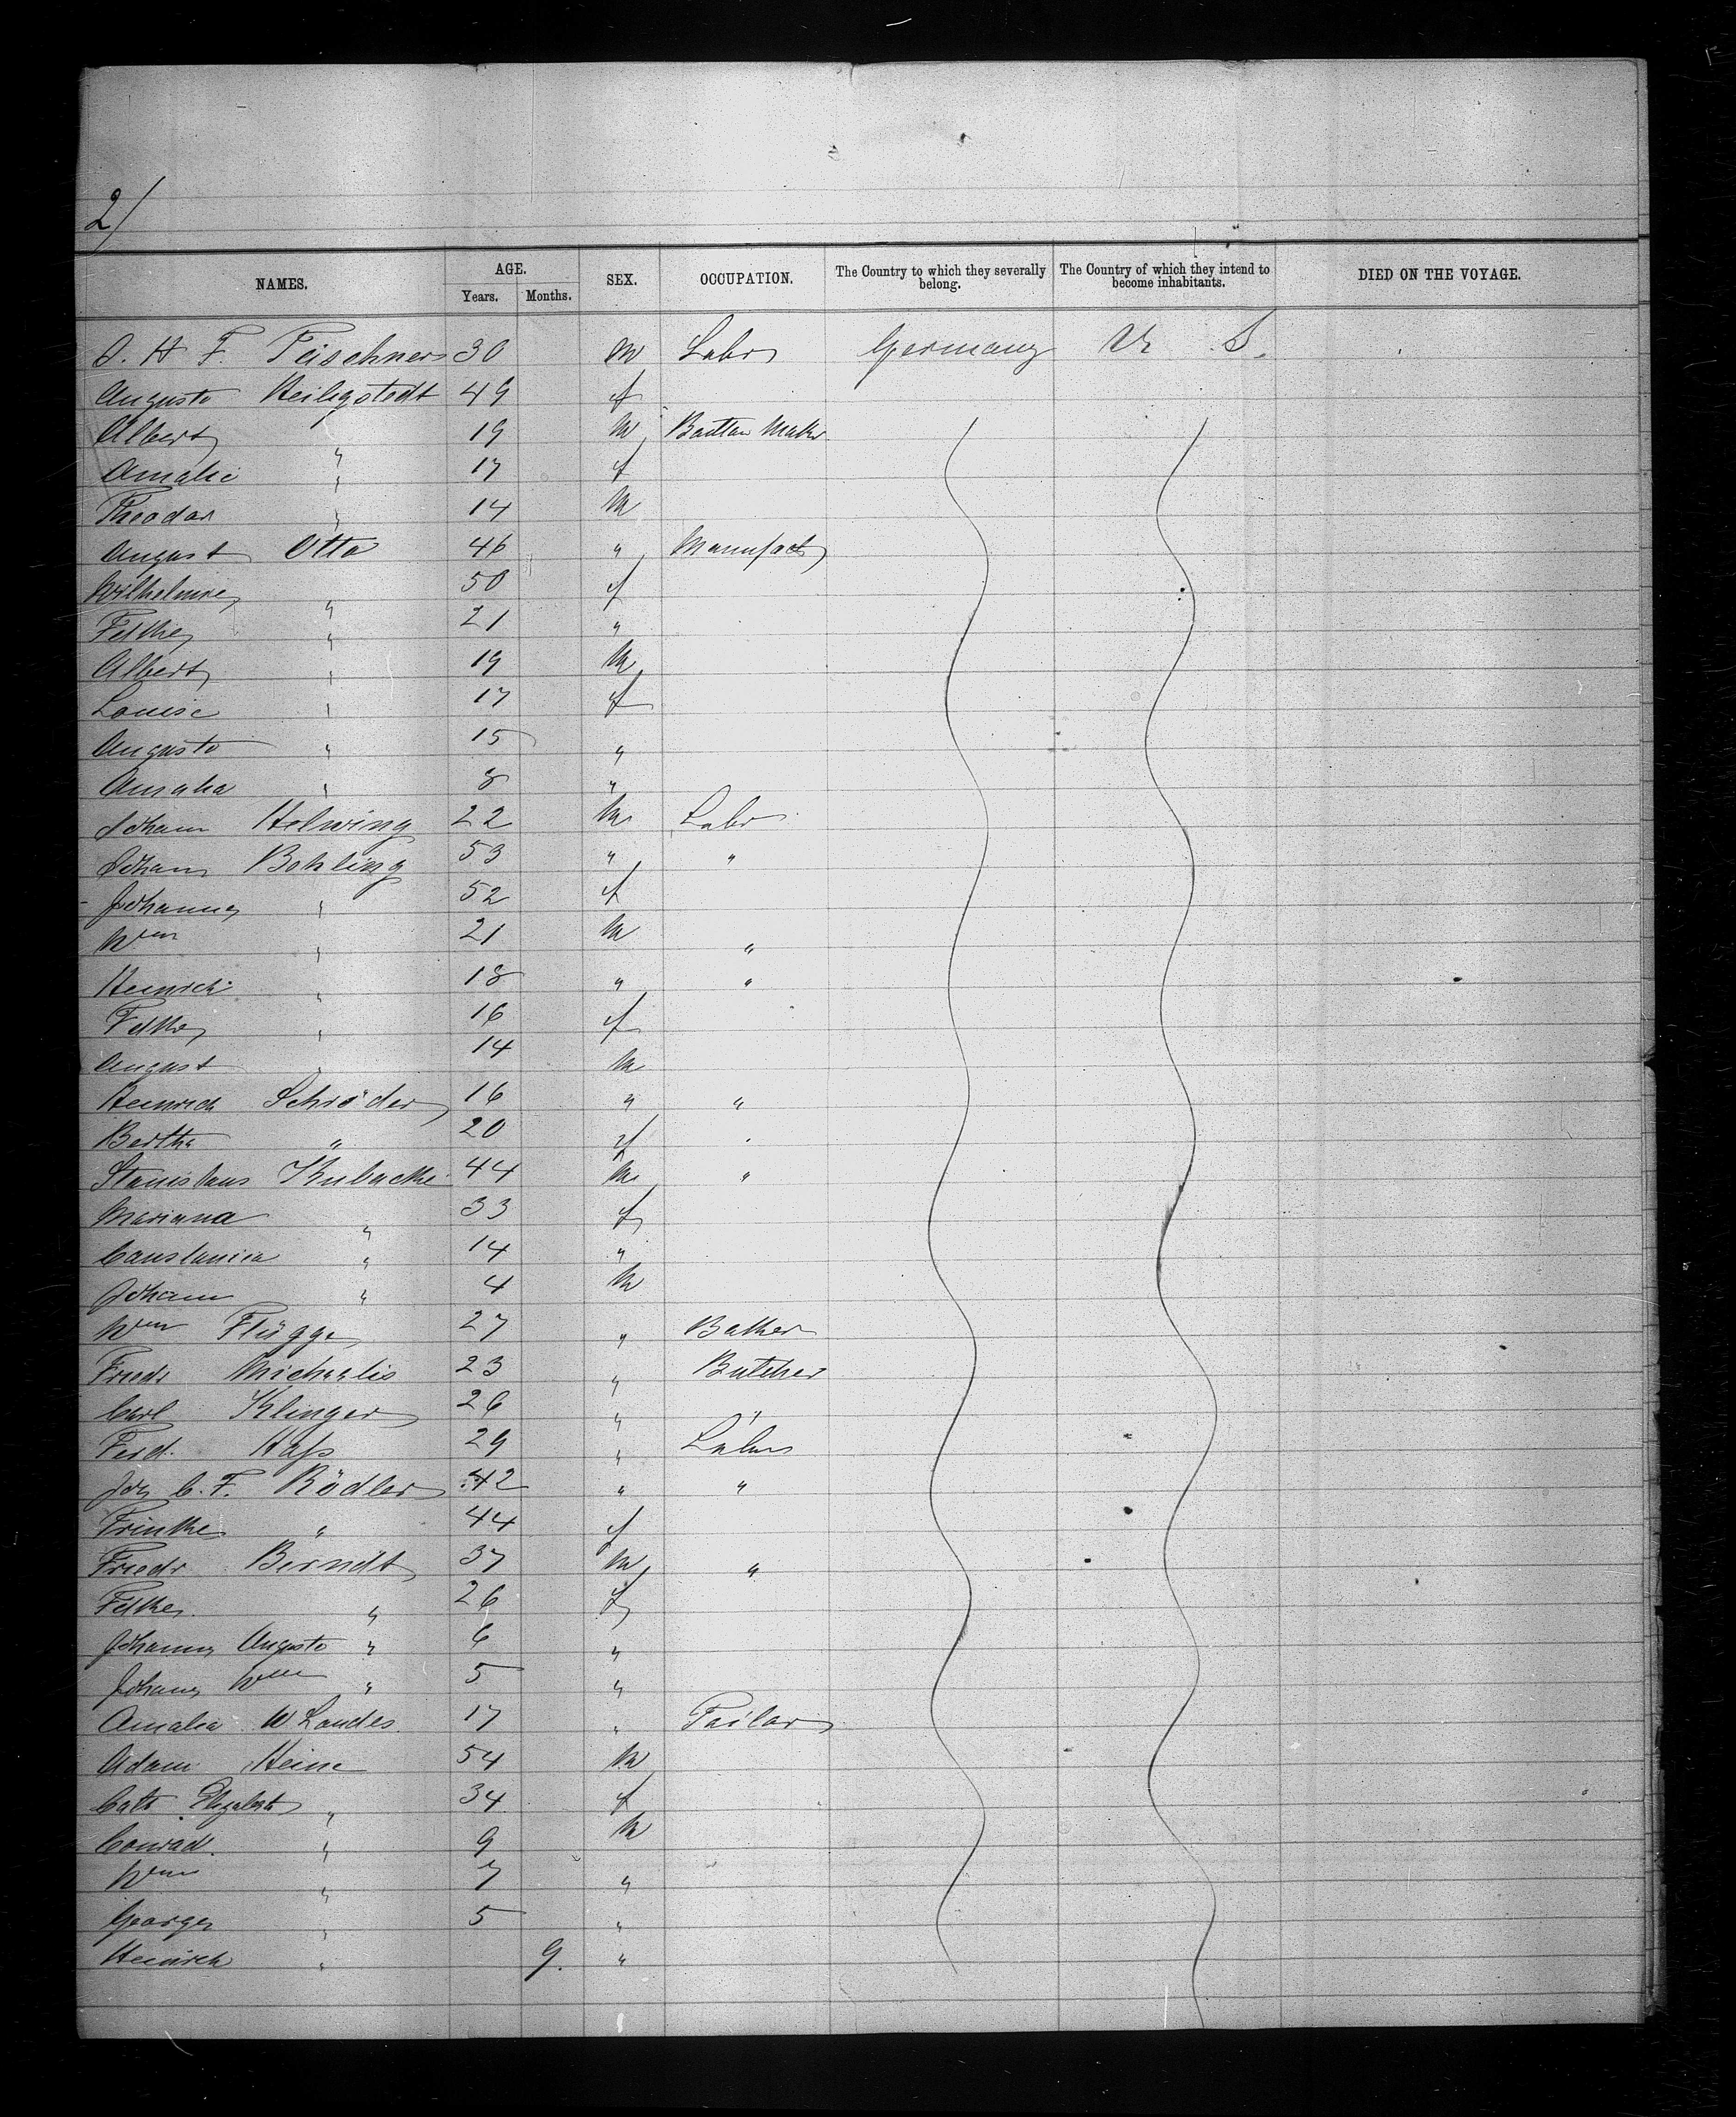 2/
NAMES. AGE. Years. Months. SEX. OCCUPATION. The Country to which they severally belong. The Country of which they intend to become inhabitants. DIED ON THE VOYAGE.
H F. 30 m Labr Germany U S.
Auguste Heiligstedt 49 f
Albert " 19 m Maker
Amalie " 17 f
Theodor " 14 m
August Otto 46 " Manufact
Wilhelmine " 50 f
" 21 "
Albert " 19 m
Louise " 17 f
Auguste " 15 "
Amalia " 8 "
Johann Helwing 22 m Labr
Johann Bohling 53 " "
Johanna " 52 f
Wm " 21 m "
Heinrich " 18 " "
" 16 f
August " 14 m
Heinrich Schröder 16 " "
Bertha " 20 f
Stanislaus 44 m "
Mariana " 33 f
" 14 "
Johann " 4 m
Wm Flügge 27 "
Friedr Michaelis 23 " Butcher
Carl Klinger 26 " "
Ferd. 29 " Labr
Joh C. F. Rödler 42 " "
" 44 f
Friedr Berndt 37 m "
" 26 f
Johanna Auguste " 6 "
Johann Wm " 5 "
Amalia W Landes 17 " Tailor
Adam Heine 54 m
Cath Elizabeth " 34 f
Conrad. " 9 m
Wm " 7 "
George " 5 "
Heinrich " 9. "